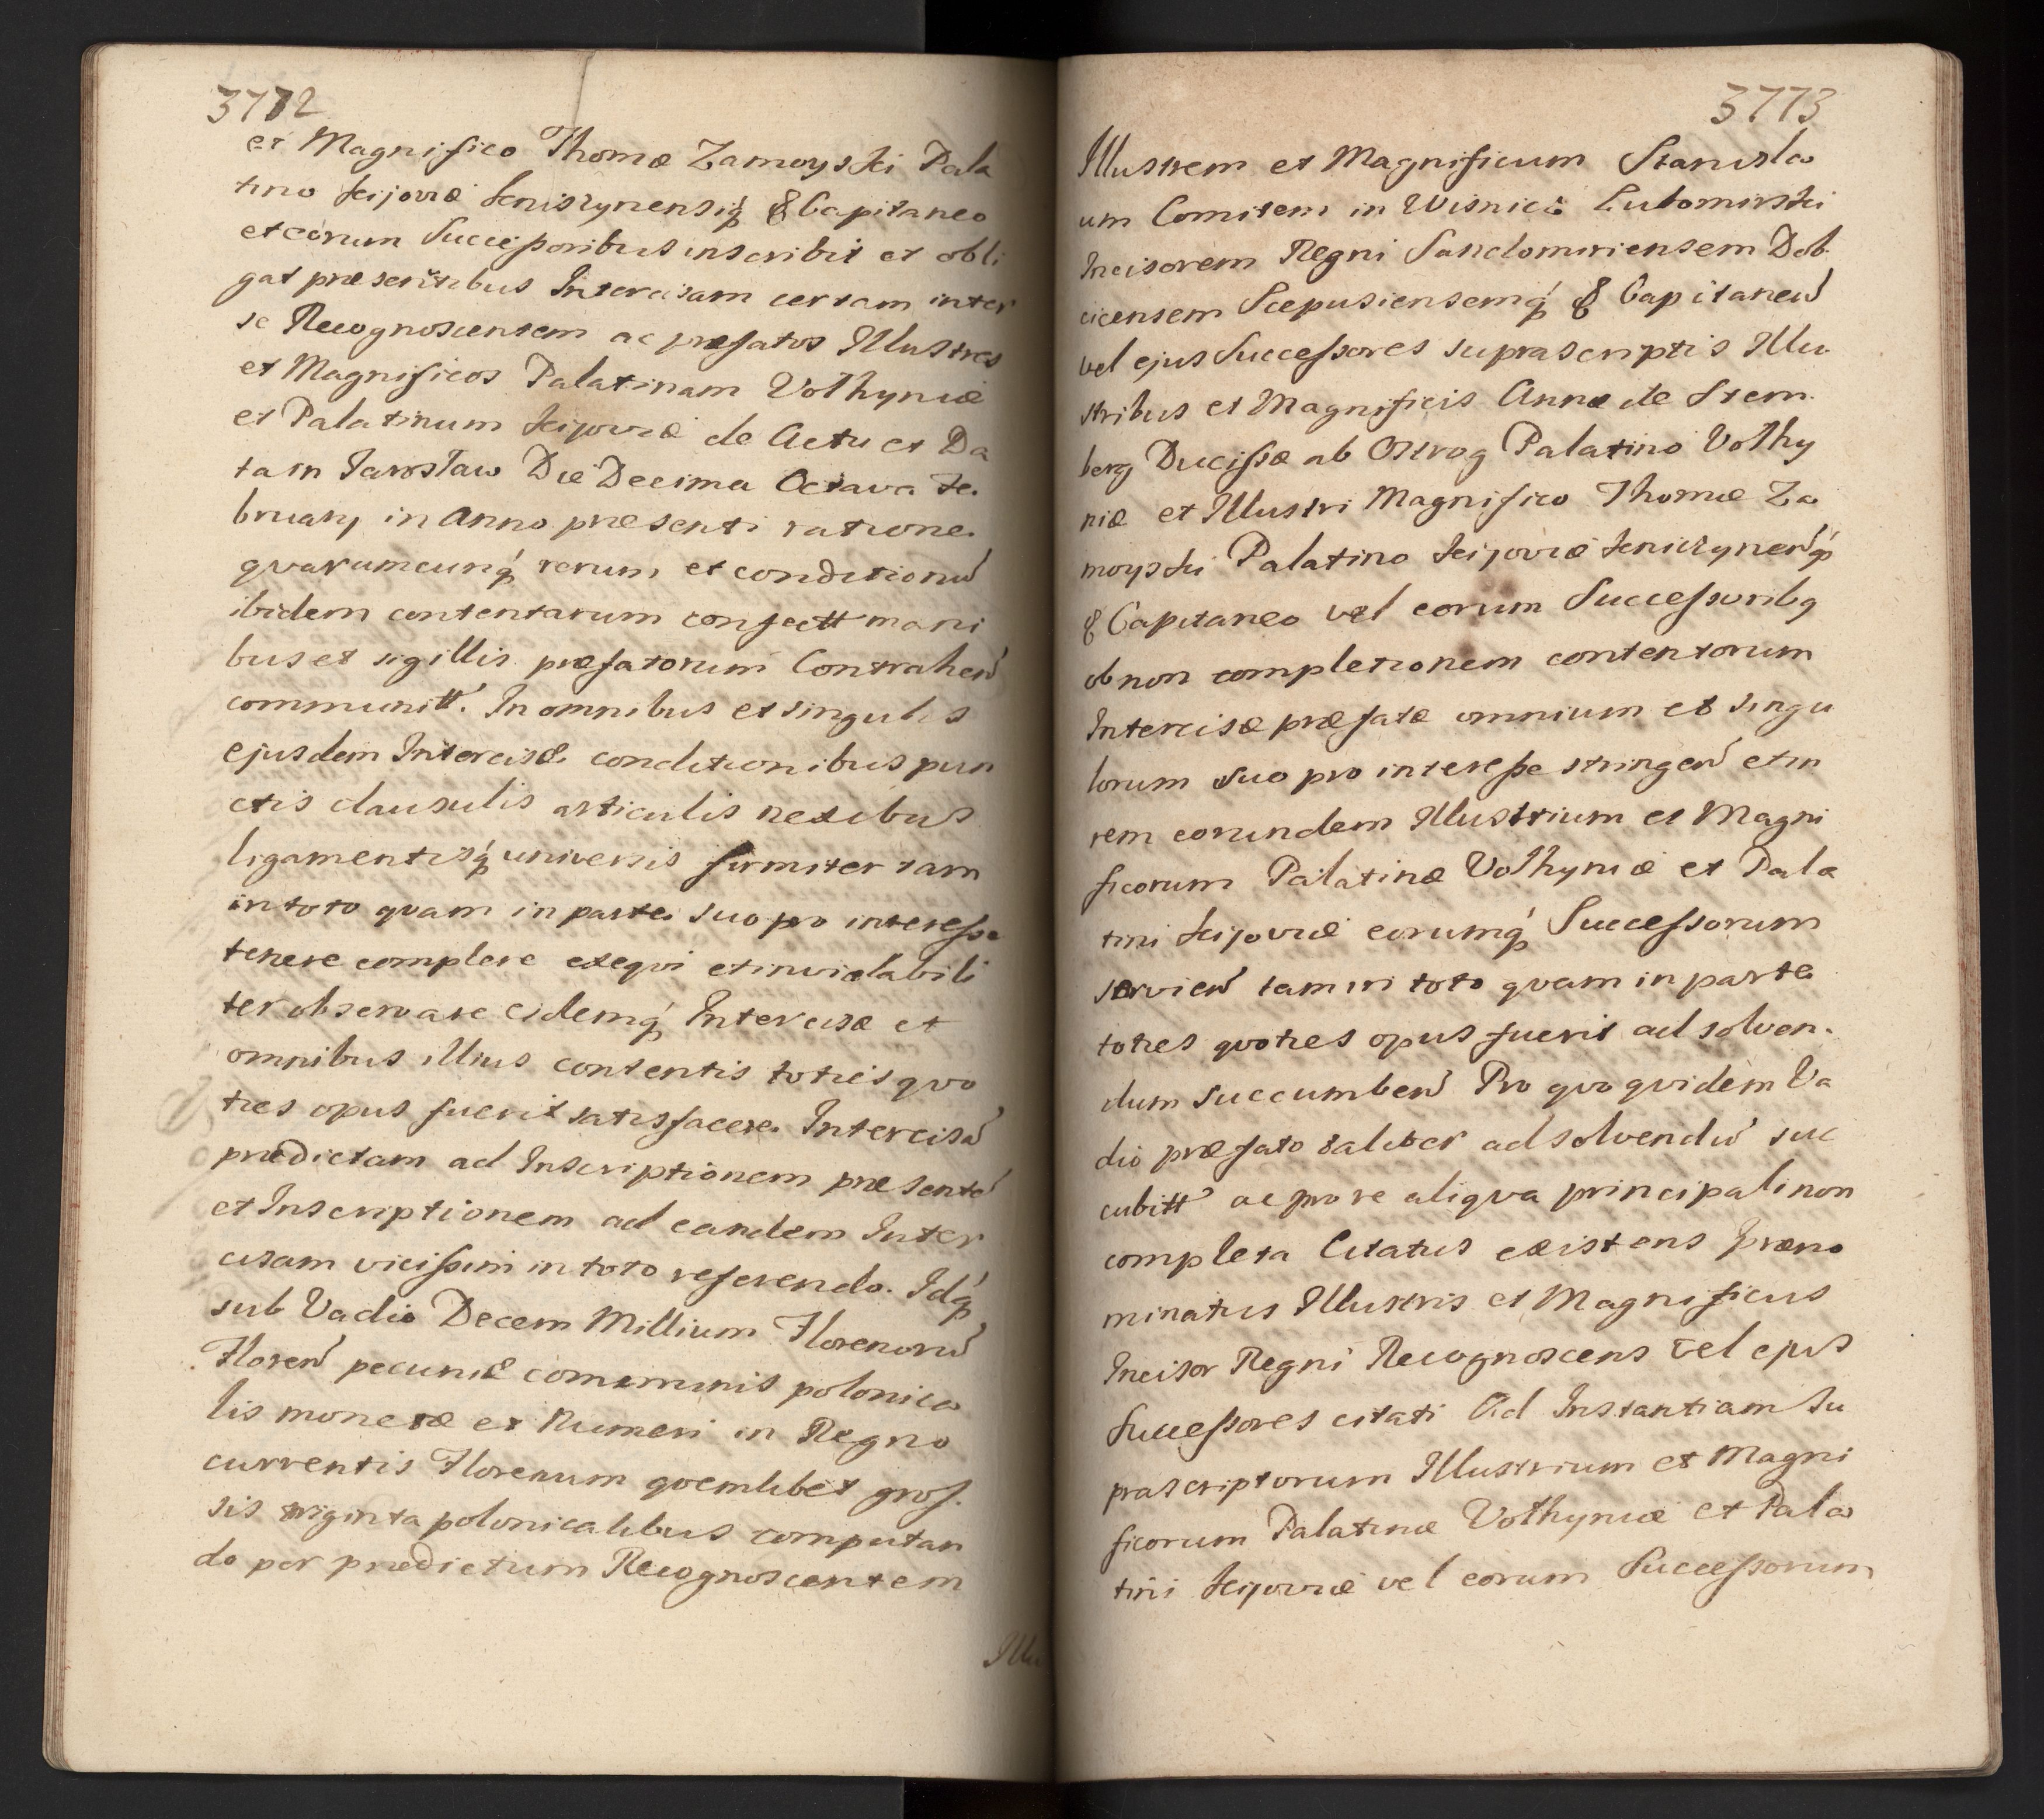 3772
et Magnifico Thomæ Zamoyski Pala
tino Kijoviæ Kniszynensiq́ & Capitaneo
et eorum Successoribus inscribit et obli
gat præsentibus Intercisam certam inter
se Recognoscentem ac præfatos Illustres
et Magnificos Palatinam Volhyniæ
et Palatinum Kijoviæ de Actu et Da
ta in Jarosław Die Decima Octava Fe
bruary in Anno præsenti ratione
qvarumcunq́ rerum et conditionu͂
ibidem contentarum confectt mani
bus et sigillis præfatorum Contrahen͂
communitt. In omnibus et singulis
ejusdem Intercisæ conditionibus pun
ctis clausulis articulis nexibus
ligamentisq́ universis firmiter tam
in toto qvam in parte suo pro interesse
tenere complere exeqvi et inviolabili
ter observare eidemq́ Intercisæ et
omnibus illius contentis toties qvo
ties opus fuerit satisfacere Intercisa͂
prædictam ad Inscriptionem præsente͂
et Inscriptionem ad eandem Inter
cisam vicissim in toto referendo. Idq́
sub Vadio Decem Millium Florenoru͂
Floren͂ pecuniæ communis polonica
lis monetæ et Numeri in Regno
currentis Florenum qvemlibet gros
sis triginta polonicalibus computan
do per prædictum Recognoscentem
Illu
3773
Illustrem et Magnificum Stanisla
um Comitem in Wisnicz Lubomirski
Incisorem Regni Sandomiriensem Dob
cicensem Scepusiensemq́ & Capitaneu͂
vel ejus Successores suprascriptis Illu
stribus et Magnificis Annæ de Stem
berg Ducissæ ab Ostrog Palatino Volhy
niæ et Illustri Magnifico Thomæ Za
moyski Palatino Kijoviæ Kniszynen͂q́
& Capitaneo vel eorum Successoribq
ob non completionem contentorum
Intercisæ præfatæ omnium et singu
lorum suo pro interesse stringen͂ et in
rem eorundem Illustrium et Magni
ficorum Palatinæ Volhyniæ et Pala
tini Kijoviæ eorumq́ Successorum
servien͂ tam in toto qvam in parte
toties qvoties opus fuerit ad solven
dum succumben͂ Pro qvo qvidem Va
dio præfato taliter ad solvendu͂ suc
cubitt ac pro re aliqva principali non
completa Citatus existens præno
minatus Illustris et Magnificus
Incisor Regni Recognoscens vel ejus
Successores citati Ad Instantiam Su
prascriptorum Illustrium et Magni
ficorum Palatinæ Volhyniæ et Pala
tini Kijoviæ vel eorum Successorum